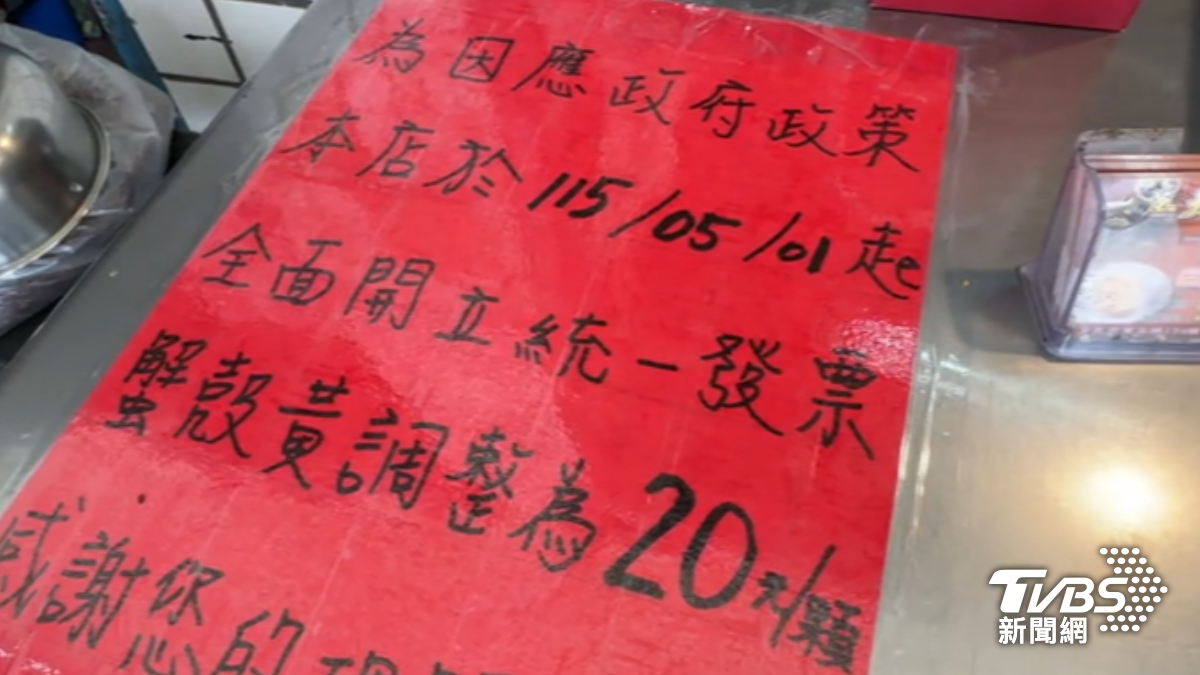 為因應政府政策
本店於115/05/01起
全面開立統一發票
蟹殼黃調整為20元/顆
感謝您的
TVBS
新聞網